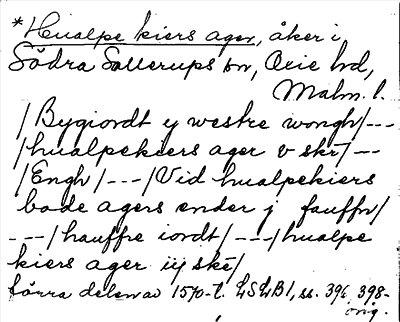 *Hualpe kiers ager, åker i
Södra Sallerups sn, Oxie hd,
Malm. l.
/Bygiordt ij westre wongh/---
/hualpekiers ager v skr/---
/Engh/---/Vid hualpekiers
bode agers ender j fauffn/
---/hauffre iordt/---/hualpe
kiers ager iij ske/
Södra delen av 1570-t. LSLB 1, ss. 396, 398-
orig.